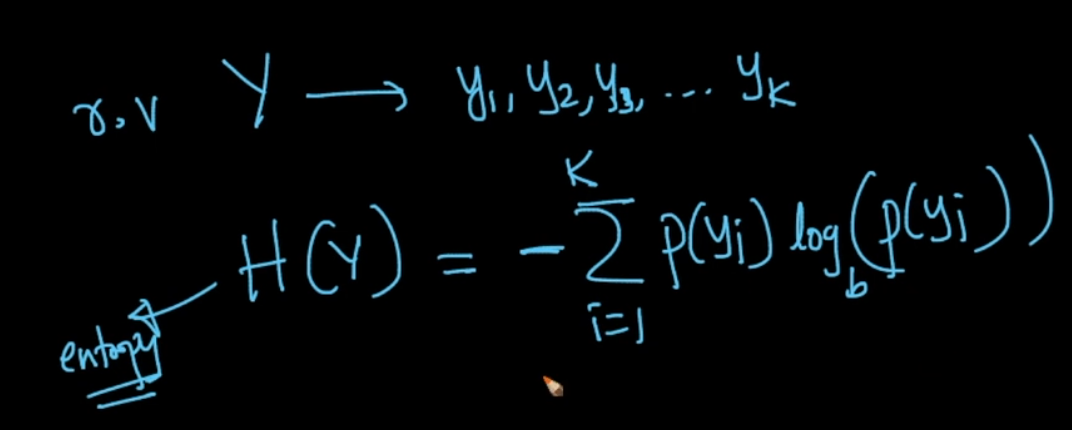 r.v Y → y₁, y₂, y₃, ... yₖ
H(Y) = - ∑ᵢ₌₁ᴷ p(yᵢ) log_b(p(yᵢ))
entropy